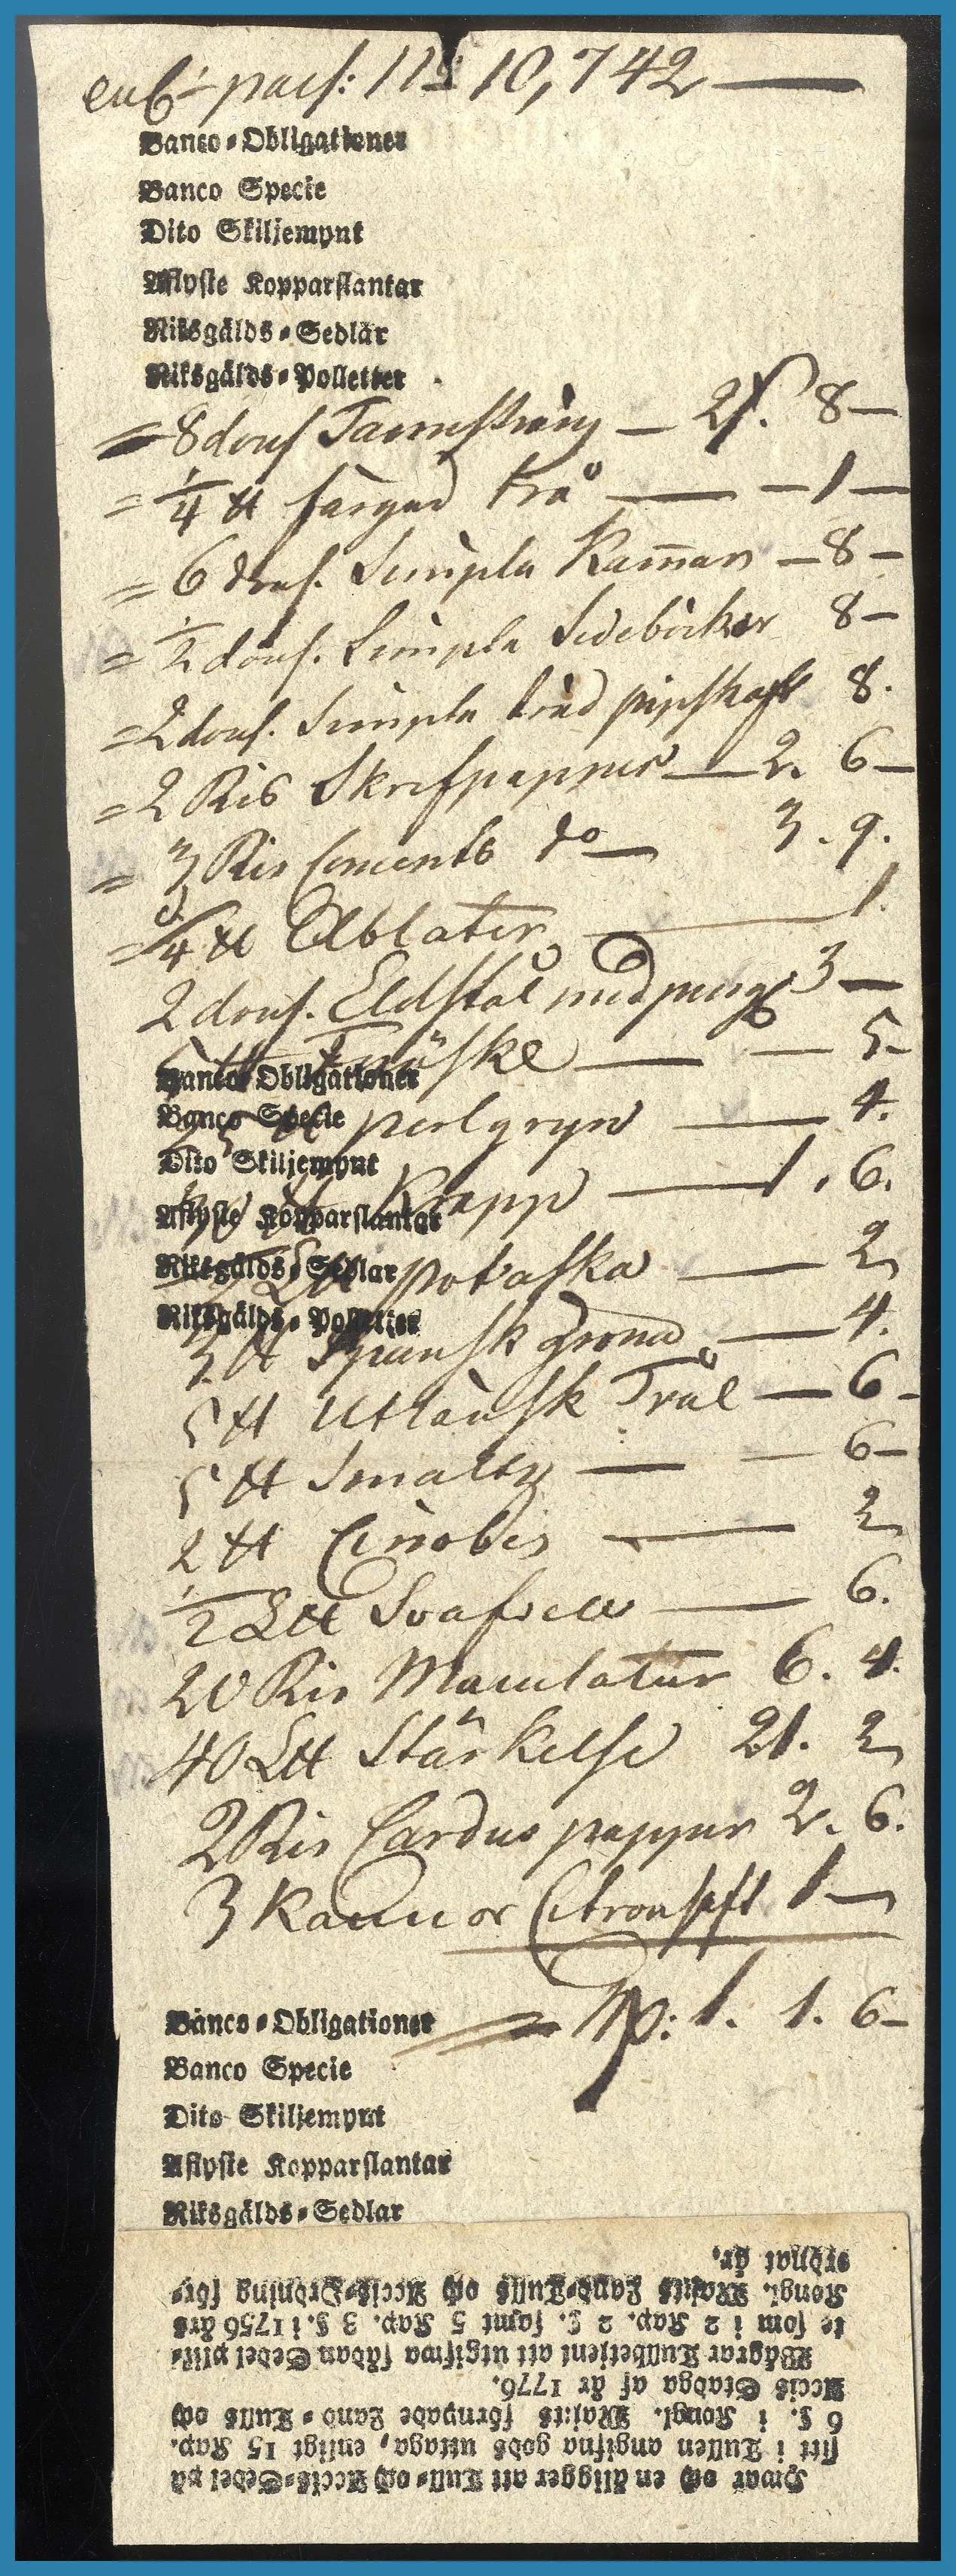 enl. pass: 115 10,742 —
Banco-Obligationer
Banco Specie
Dito Skiljemynt
Aflyste Kopparslantar
Riksgälds-Sedlar
Riksgälds-Polletter
= 8 dous — 21. 8 —
= 1/4 ℔ färgad trå — — 1 —
= 6 dous. Simpla Kam̅ar — 8 —
= 1/2 dous. Simpla 8 —
= 2 dous. Simpla pipskaft 8.
= 2 Ris Skrifpapper — 2. 6 —
= 3 Ris Concents do — 3. 9.
= 3/4 ℔ Oblater — 1.
2 dous. Eldstål med pung 3 —
Fnöske — — 5 —
Banco Obligationer
perlgryn — 4.
Banco Specie
Dito Skiljemynt
Krapp — 1. 6.
Aflyste Kopparslantar
Riksgälds-Sedlar
potaska — 2
Riksgälds-Polletter
3 ℔ Spansk Gröna — 4.
5 ℔ Utländsk Trål — 6 —
5 ℔ Smaltz — — 6 —
2 ℔ Cinober — 2
1/2 L℔ Svafvel — 6.
20 Ris Maculatur 6. 4.
40 L℔ Stärkelse 21. 2
2 Ris Cardus papper 2. 6.
3 Kannor Citronsaft 1 —
Banco-Obligationer
= 1. 1. 6 —
Banco Specie
Dito Skiljemynt
Aflyste Kopparslantar
Riksgälds-Sedlar
Hwar och en åligger att Tull- och Accis-Sedel på
sitt i Tullen angifna gods uttaga, enligt 15 Kap.
6 §. i Kongl. Maj:ts förnyade Land-Tulls och
Accis Stadga af år 1776.
Wägrar Tullbetjent att utgifwa sådan Sedel plik-
te som i 2 Kap. 2 §. samt 5 Kap. 3 §. i 1756 års
Kongl. Maj:ts Land-Tulls och Accis-Ordning för-
ordnat är.